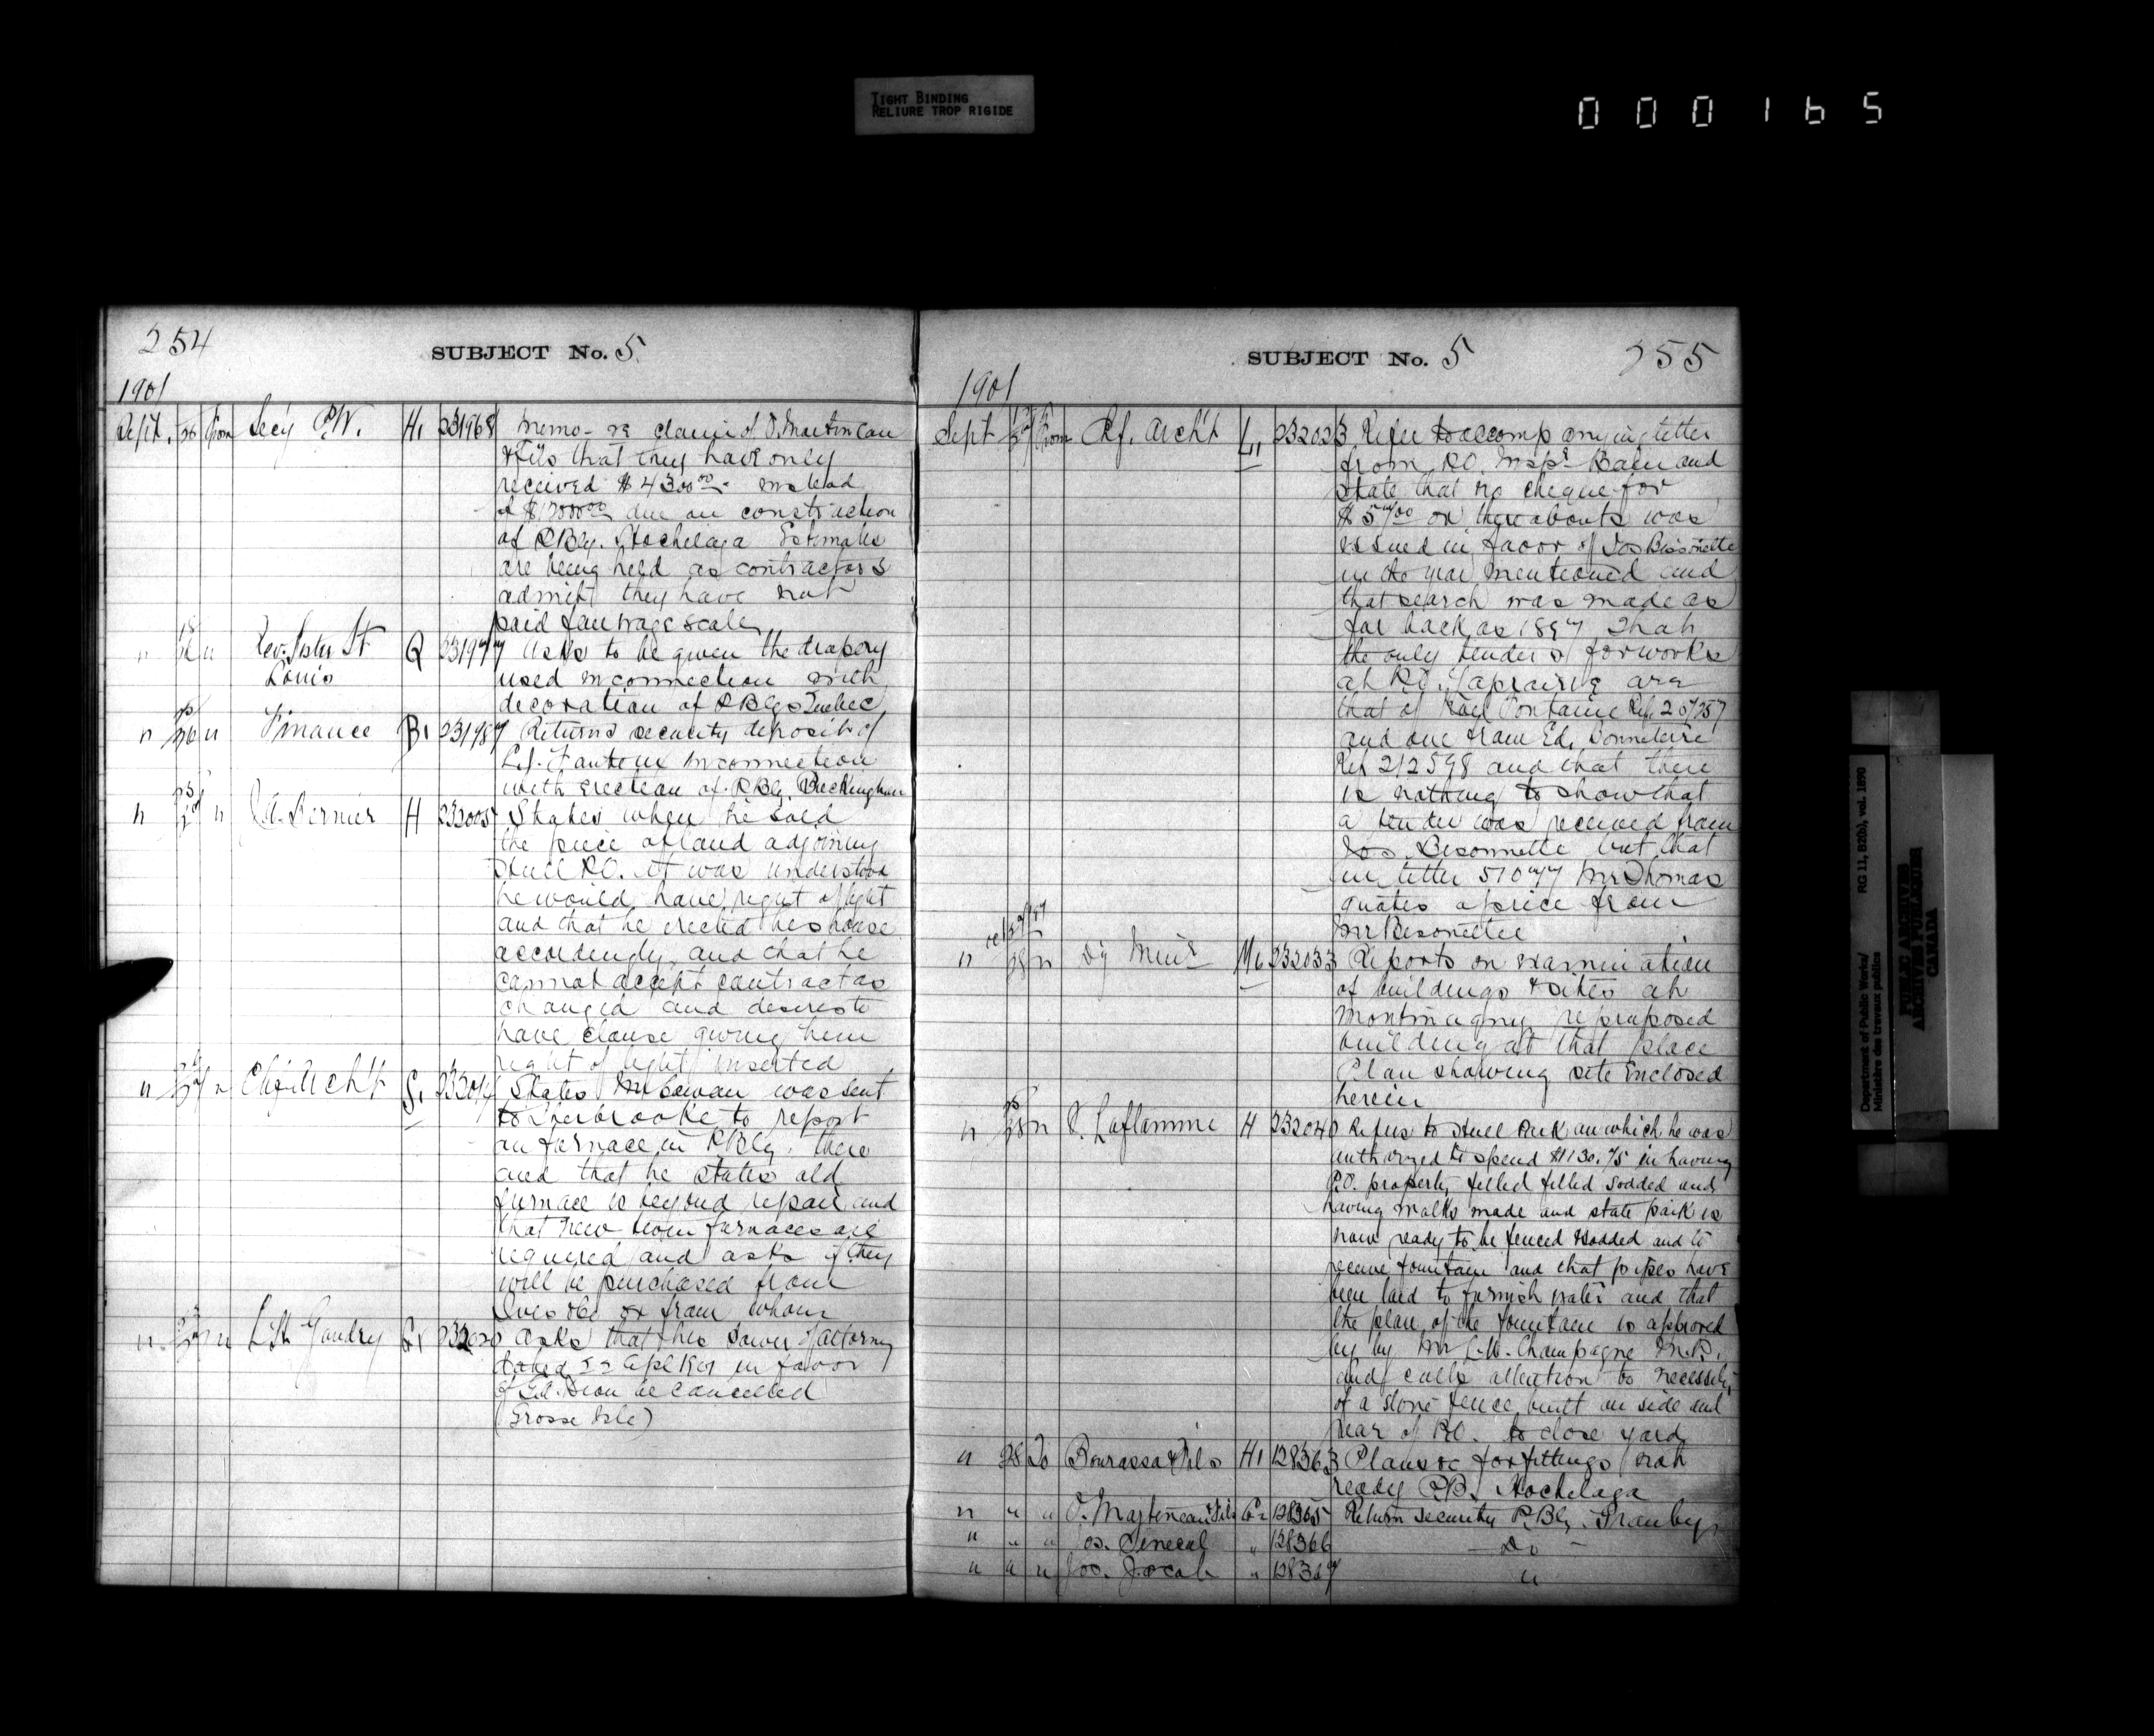 TIGHT BINDING
RELIURE TROP RIGIDE
000165
254
SUBJECT No. 5
1901
Sept. 26 From Secy P.W. H1 231968 Memo - re claim of O. Martineau
& Fils that they have only
received $4300.00 instead
of due on construction
of P.Blg. Hochelaga Estimates
are being held as contractors
admit they have not
paid fair wage scale
" " Rev. Sister St Q 231977 Asks to be given the drapery
Louis used in connection with
decoration of P Blgs Quebec
" 26 " Finance B1 231987 Returns security deposit of
L.J. Fauteux in connection
with erection of P.Blg. Buckingham
" 27 " Bernier H 232005 States when he sold
the piece of land adjoining
Hull P.O. it was understood
he would have right of light
and that he erected his house
accordingly, and that he
cannot accept contract as
changed and desires to
have clause giving him
right of light inserted
" 27 " Chf. Archt S1 232014 States Mr Ewan was sent
to Sherbrooke to report
on furnace in P.Blg. there
and that he states old
furnace is beyond repair and
that new furnaces are
required and asks if they
will be purchased from
Ives & Co or from whom
" 27 " Gaudry G1 232020 Asks that this Power of Attorney
dated 22 Apl 1901 in favor
of Ed. Dion be cancelled
(Grosse Isle)
SUBJECT No. 5 255
1901
Sept 27 From Chf. Archt L1 232023 Refer to accompanying letter
from P.O. Inspr Bain and
state that no cheque for
or thereabouts was
issued in favor of Jos Bissonette
in the year mentioned and
that search was made as
far back as 1897 That
the only tenders for works
at P.O. Laprairie are
that of Fontaine Ref 207257
and one from Ed. Bonneterre
Ref 212598 and that there
is nothing to show that
a tender was received from
Jos. Bisonnette but that
in letter 51077 Mr Thomas
quotes a price from
Mr Bisonettee
" 28 " Dy Minr M6 232033 Reports on examination
of buildings & sites at
Montmagny re proposed
building at that place
Plan showing site Enclosed
herein
" 28 " Laflamme H 232040 Refers to Hull Park on which he was
authorized to spend $1130.75 in having
P.O. property filled filled sodded and
having walks made and state park is
now ready to be fenced & sodded and to
receive fountain and that pipes have
been laid to furnish water and that
the plan of the fountain is approved
by by Mr L.N. Champagne M.P.
and calls attention to necessity
of a stone fence built on side and
rear of P.O. to close yard
" 28 To Bourassa & Fils H1 128363 Plans &c for fittings not
ready P.B. Hochelaga
" " " O. Martineau & Fils G2 128365 Return security P.Blg. Granby
" " " Jos. Senecal " 128366 - Do -
" " " Jos. Jacob " 128367 "
Department of Public Works/
Ministère des travaux publics
RG 11, B2(b), vol. 1890
PUBLIC ARCHIVES
ARCHIVES PUBLIQUES
CANADA